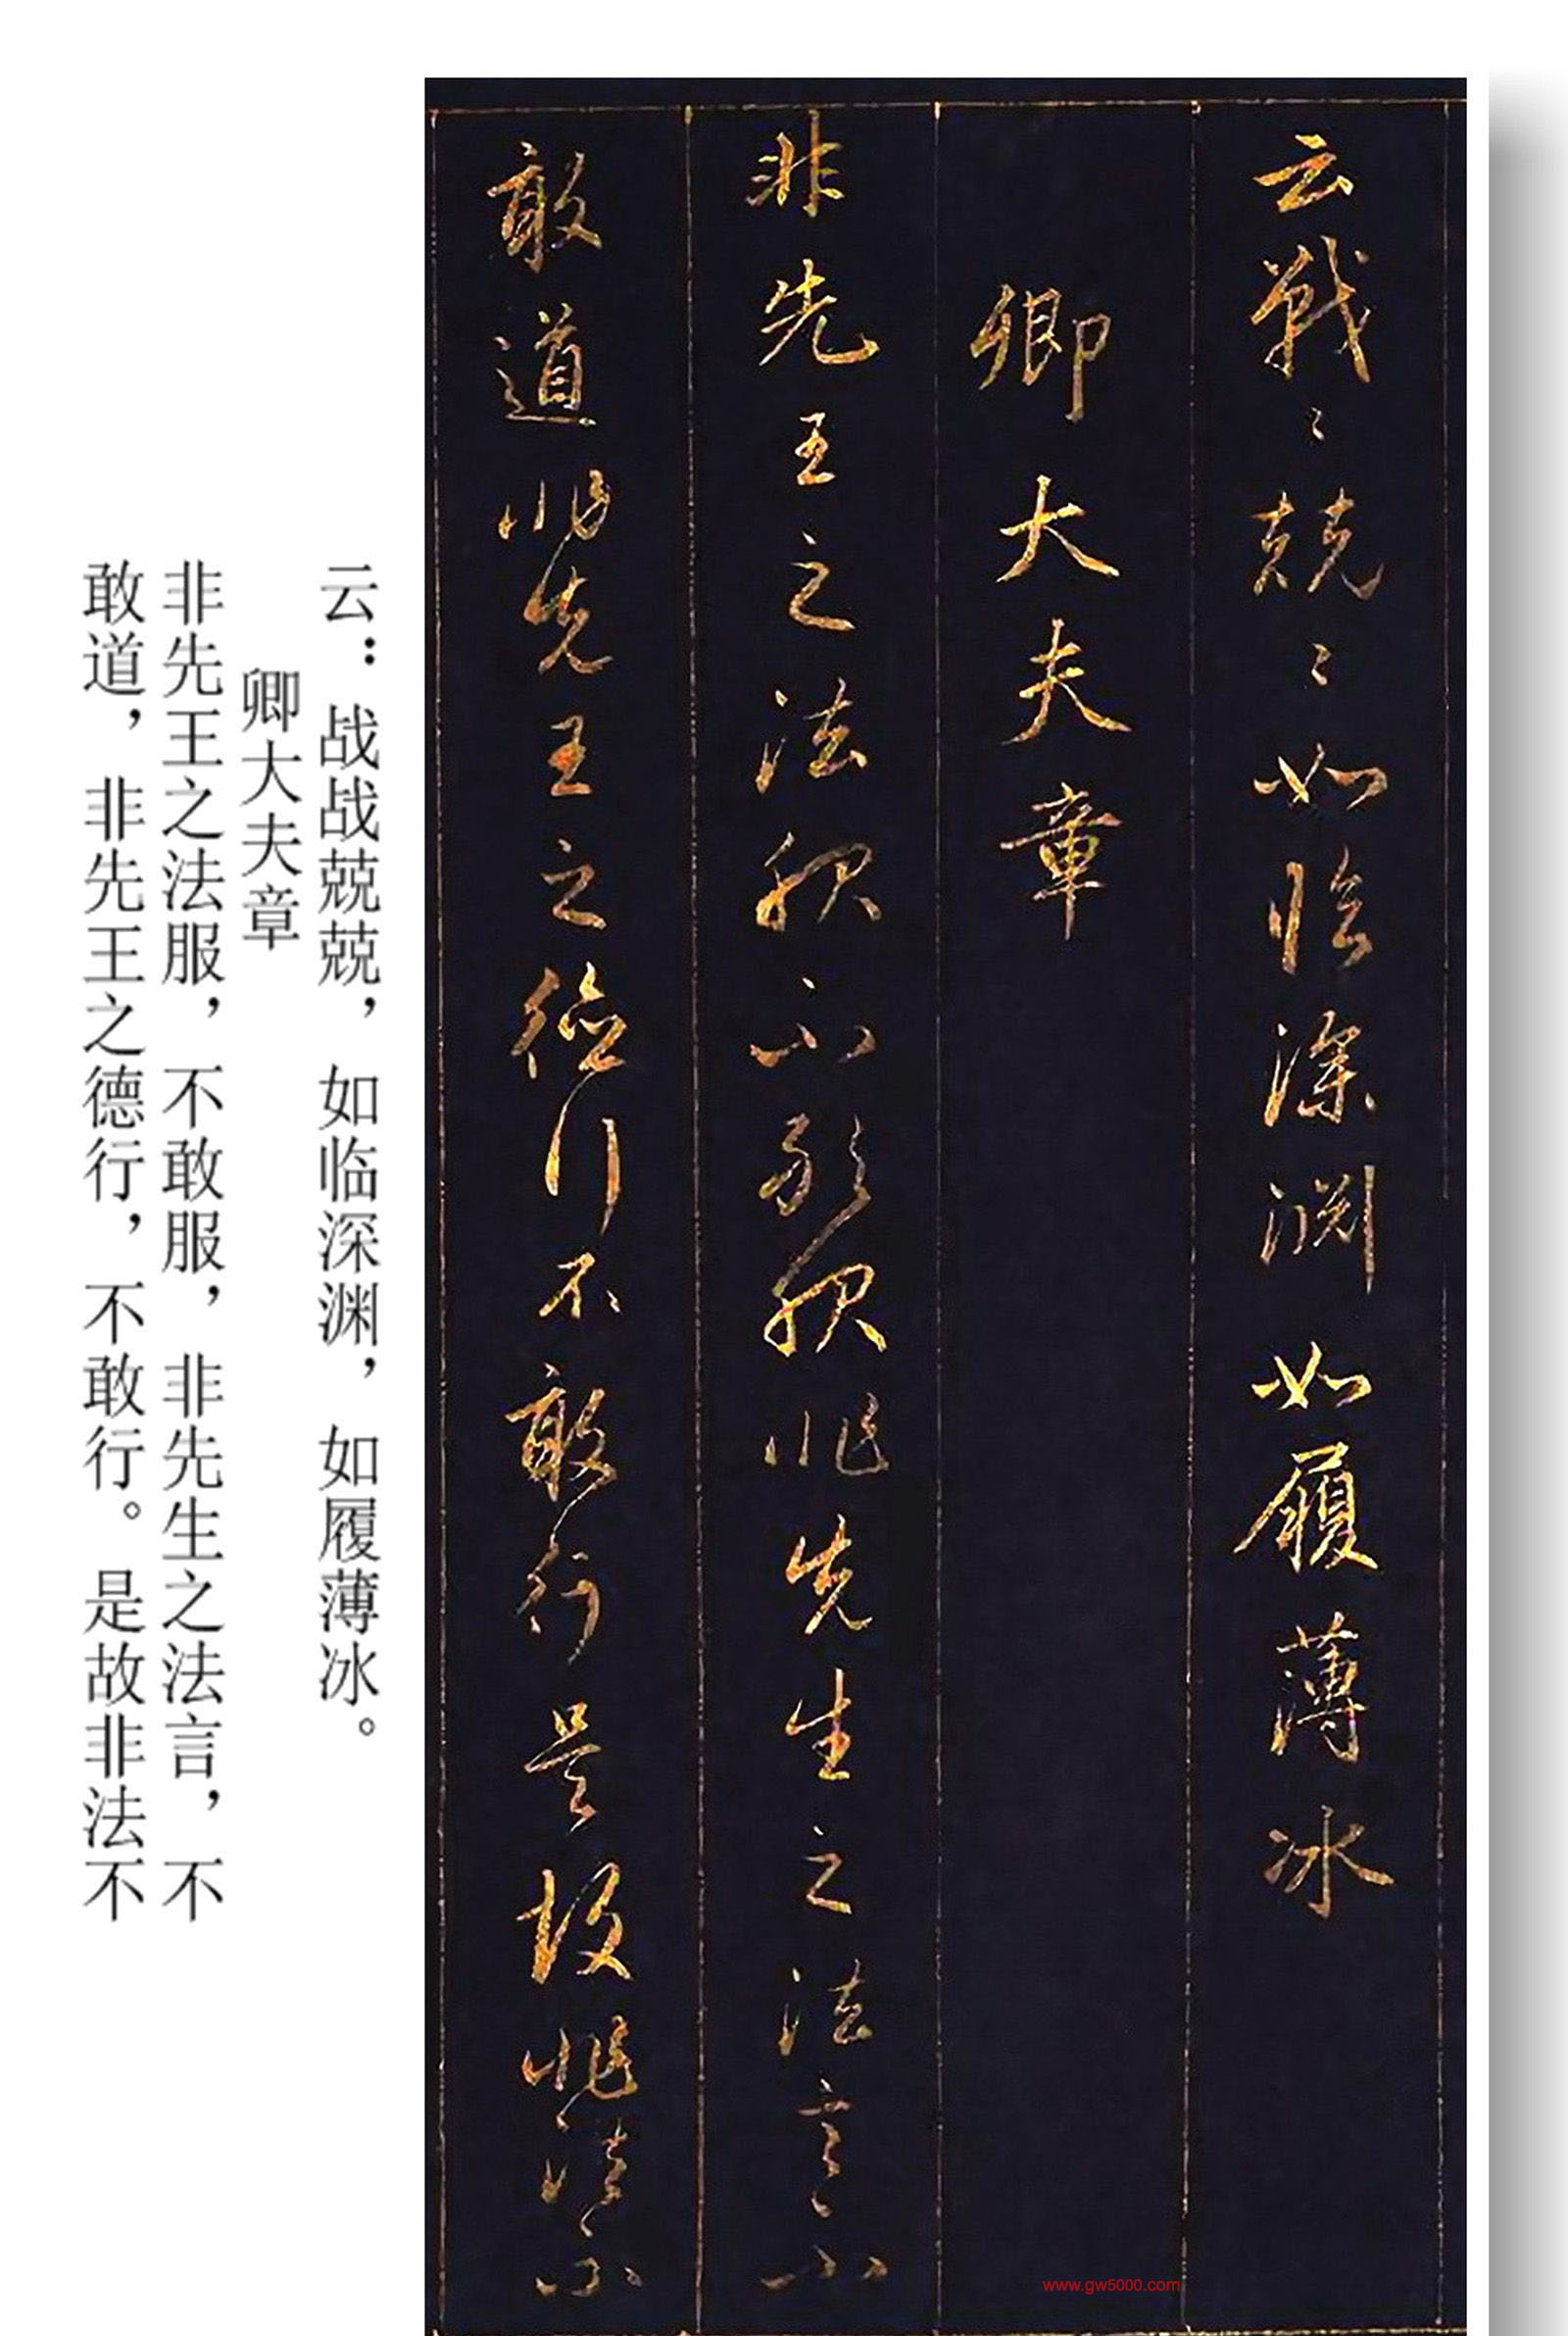 云戰〻兢〻如臨深淵如履薄冰
卿大夫章
非先王之法服不敢服非先生之法言不
敢道非先王之德行不敢行是故非法不
云：战战兢兢，如临深渊，如履薄冰。
卿大夫章
非先王之法服，不敢服，非先生之法言，不
敢道，非先王之德行，不敢行。是故非法不
www.gw5000.com